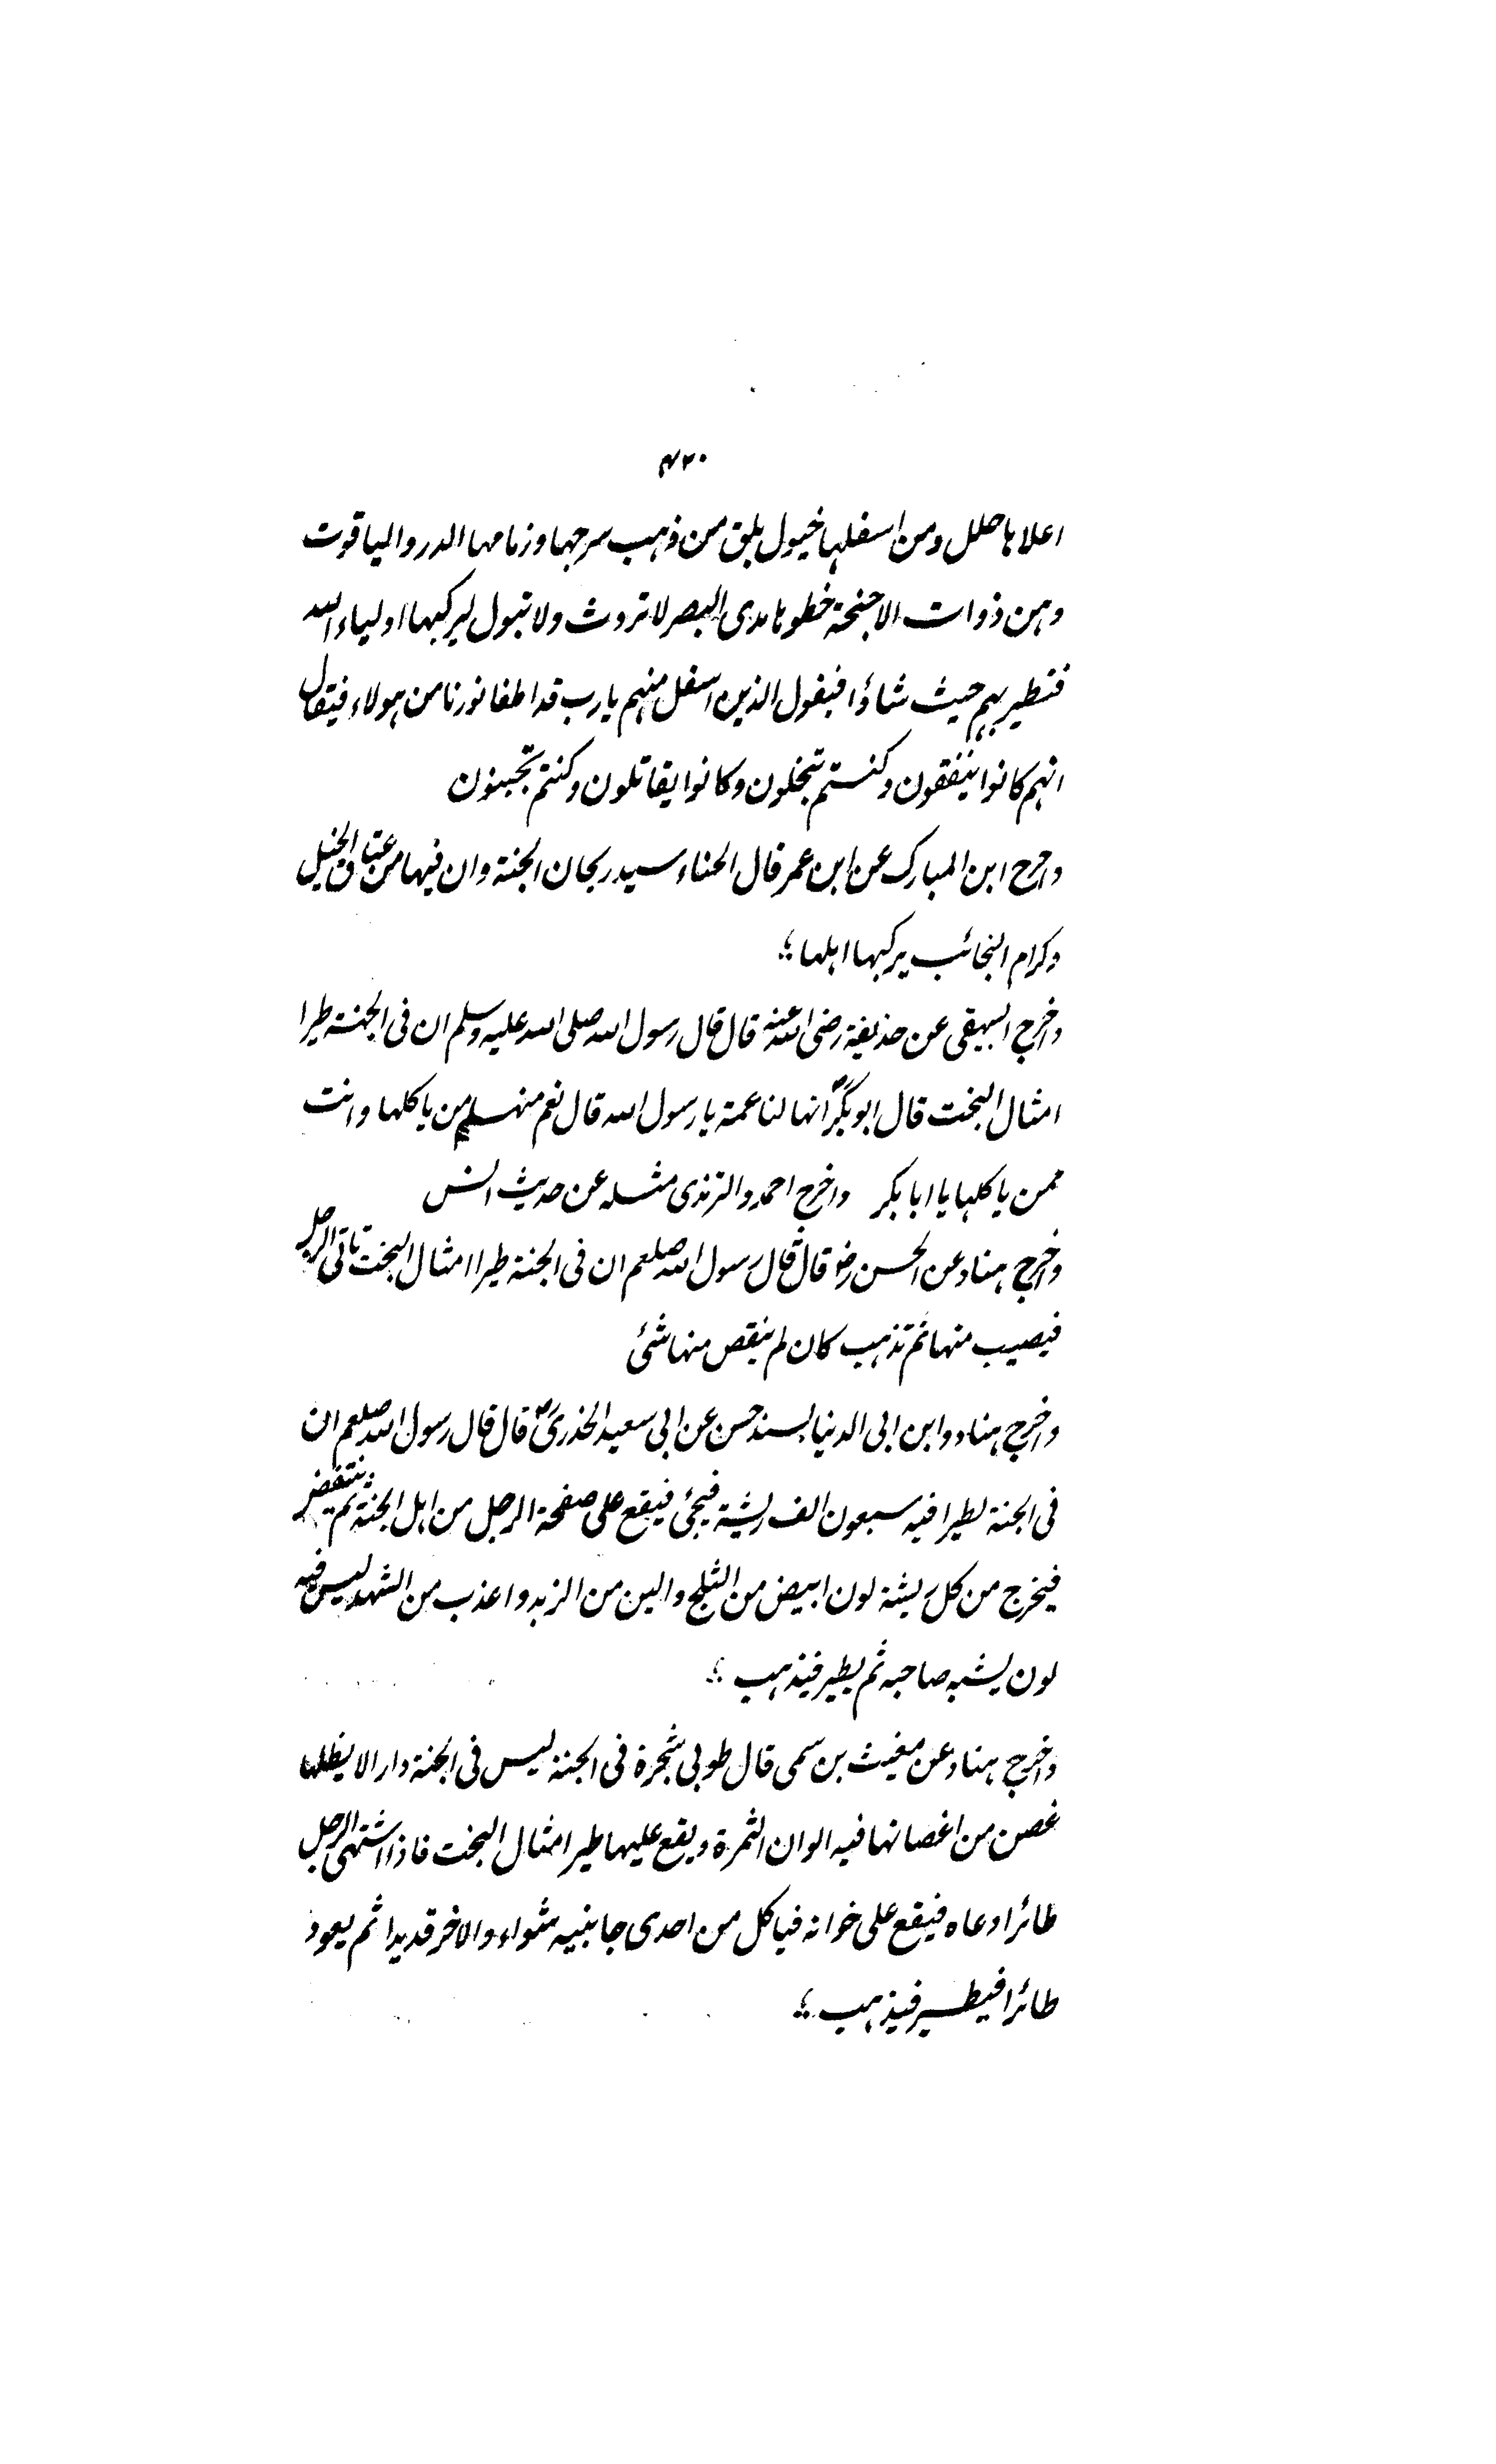 ۴۲۰
اعلاہا حلل ومن اسفلہا خیول بلق من ذہب سرجہا وزمامہا الدر والیاقوت
وہن ذوات الاجنحۃ خطوہا مدی البصر لا تروث ولا تبول لیرکبہا اولیاء اللہ
فتطیر بہم حیث شاؤا فیقول الذین اسفل منہم یا رب قد اطفا نورنا من ہولاء فیقال
انہم کانوا ینفقون وکنتم تبخلون وکانوا یقاتلون وکنتم تجبنون
واخرج ابن المبارک عن ابن عمر قال الحناء سید ریحان الجنۃ وان فیہا من عتاق الخیل
وکرام النجائب یرکبہا اہلہا ؛
واخرج البیہقی عن حذیفۃ رضی اللہ عنہ قال قال رسول اللہ صلی اللہ علیہ وسلم ان فی الجنۃ طیرا
امثال البخت قال ابو بکرؓ انہا لناعمۃ یا رسول اللہ قال نعم منہا من یاکلہا وانت
ممن یاکلہا یا ابا بکر واخرج احمد والترمذی مثلہ عن حدیث انس
واخرج ہناد عن الحسن رضؓ قال قال رسول اللہ صلعم ان فی الجنۃ طیرا امثال البخت تاتی الرجل
فیصیب منہا ثم تذہب کان لم ینقص منہا شئ
واخرج ہناد وابن ابی الدنیا بسند حسن عن ابی سعید الخدریؓ قال قال رسول اللہ صلعم ان
فی الجنۃ لطیرا فیہ سبعون الف ریشۃ فیجئ فیقع علی صفحۃ الرجل من اہل الجنۃ ثم ینتفض
فیخرج من کل ریشۃ لون ابیض من الثلج والین من الزبد واعذب من الشہد لیس فیہ
لون یشبہ صاحبہ ثم یطیر فیذہب ؛
واخرج ہناد عن مغیث بن سمی قال طوبی شجرۃ فی الجنۃ لیس فی الجنۃ دار الا یظلہا
غصن من اغصانہا فیہ الوان الثمرۃ ویقع علیہا طیر امثال البخت فاذا اشتہی الرجل
طائرا دعاہ فیقع علی خوانہ فیاکل من احدی جانبیہ شواء والاخر قدیدا ثم یعود
طائرا فیطیر فیذہب ؛